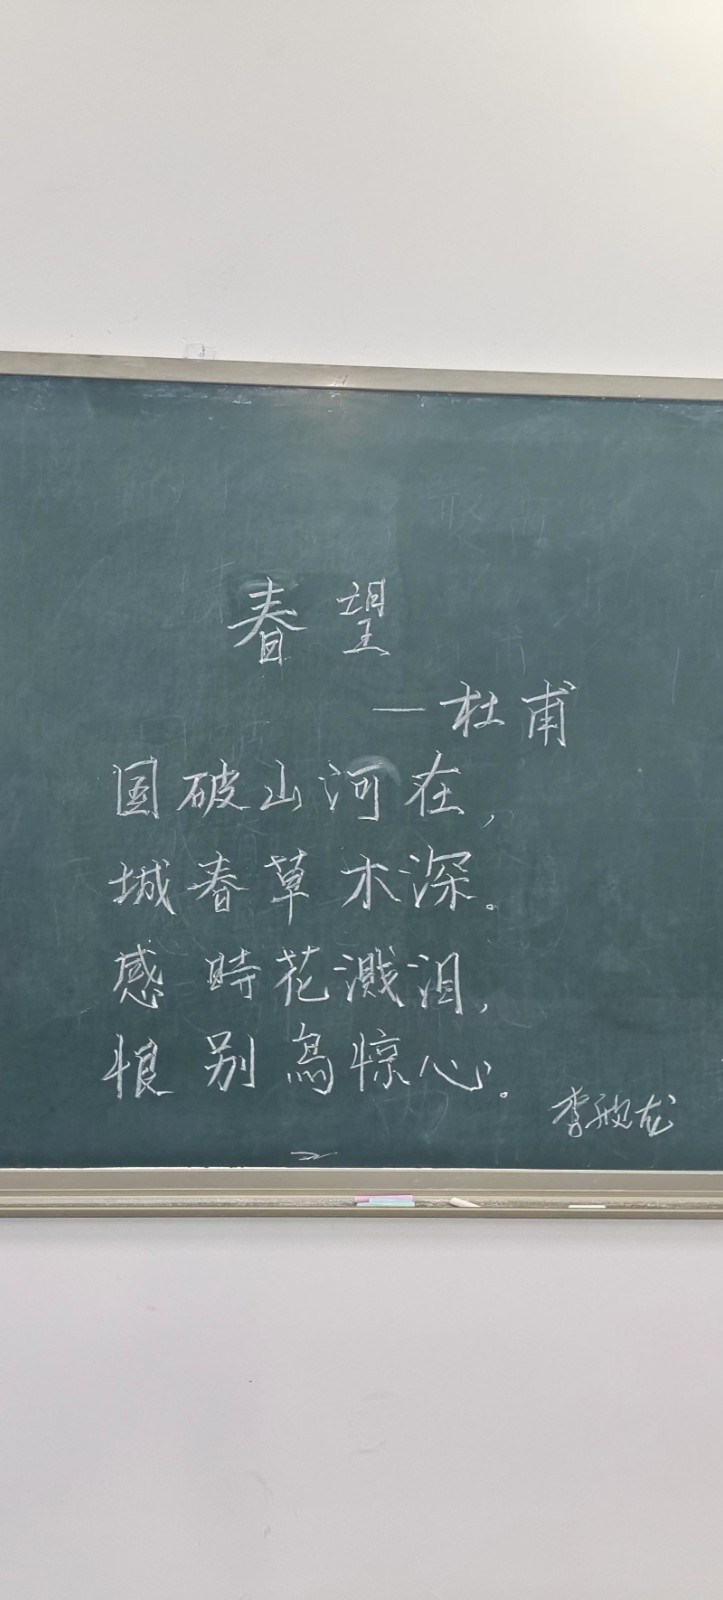 春望
—杜甫
国破山河在,
城春草木深。
感時花溅泪,
恨别鳥惊心。
李欣龙